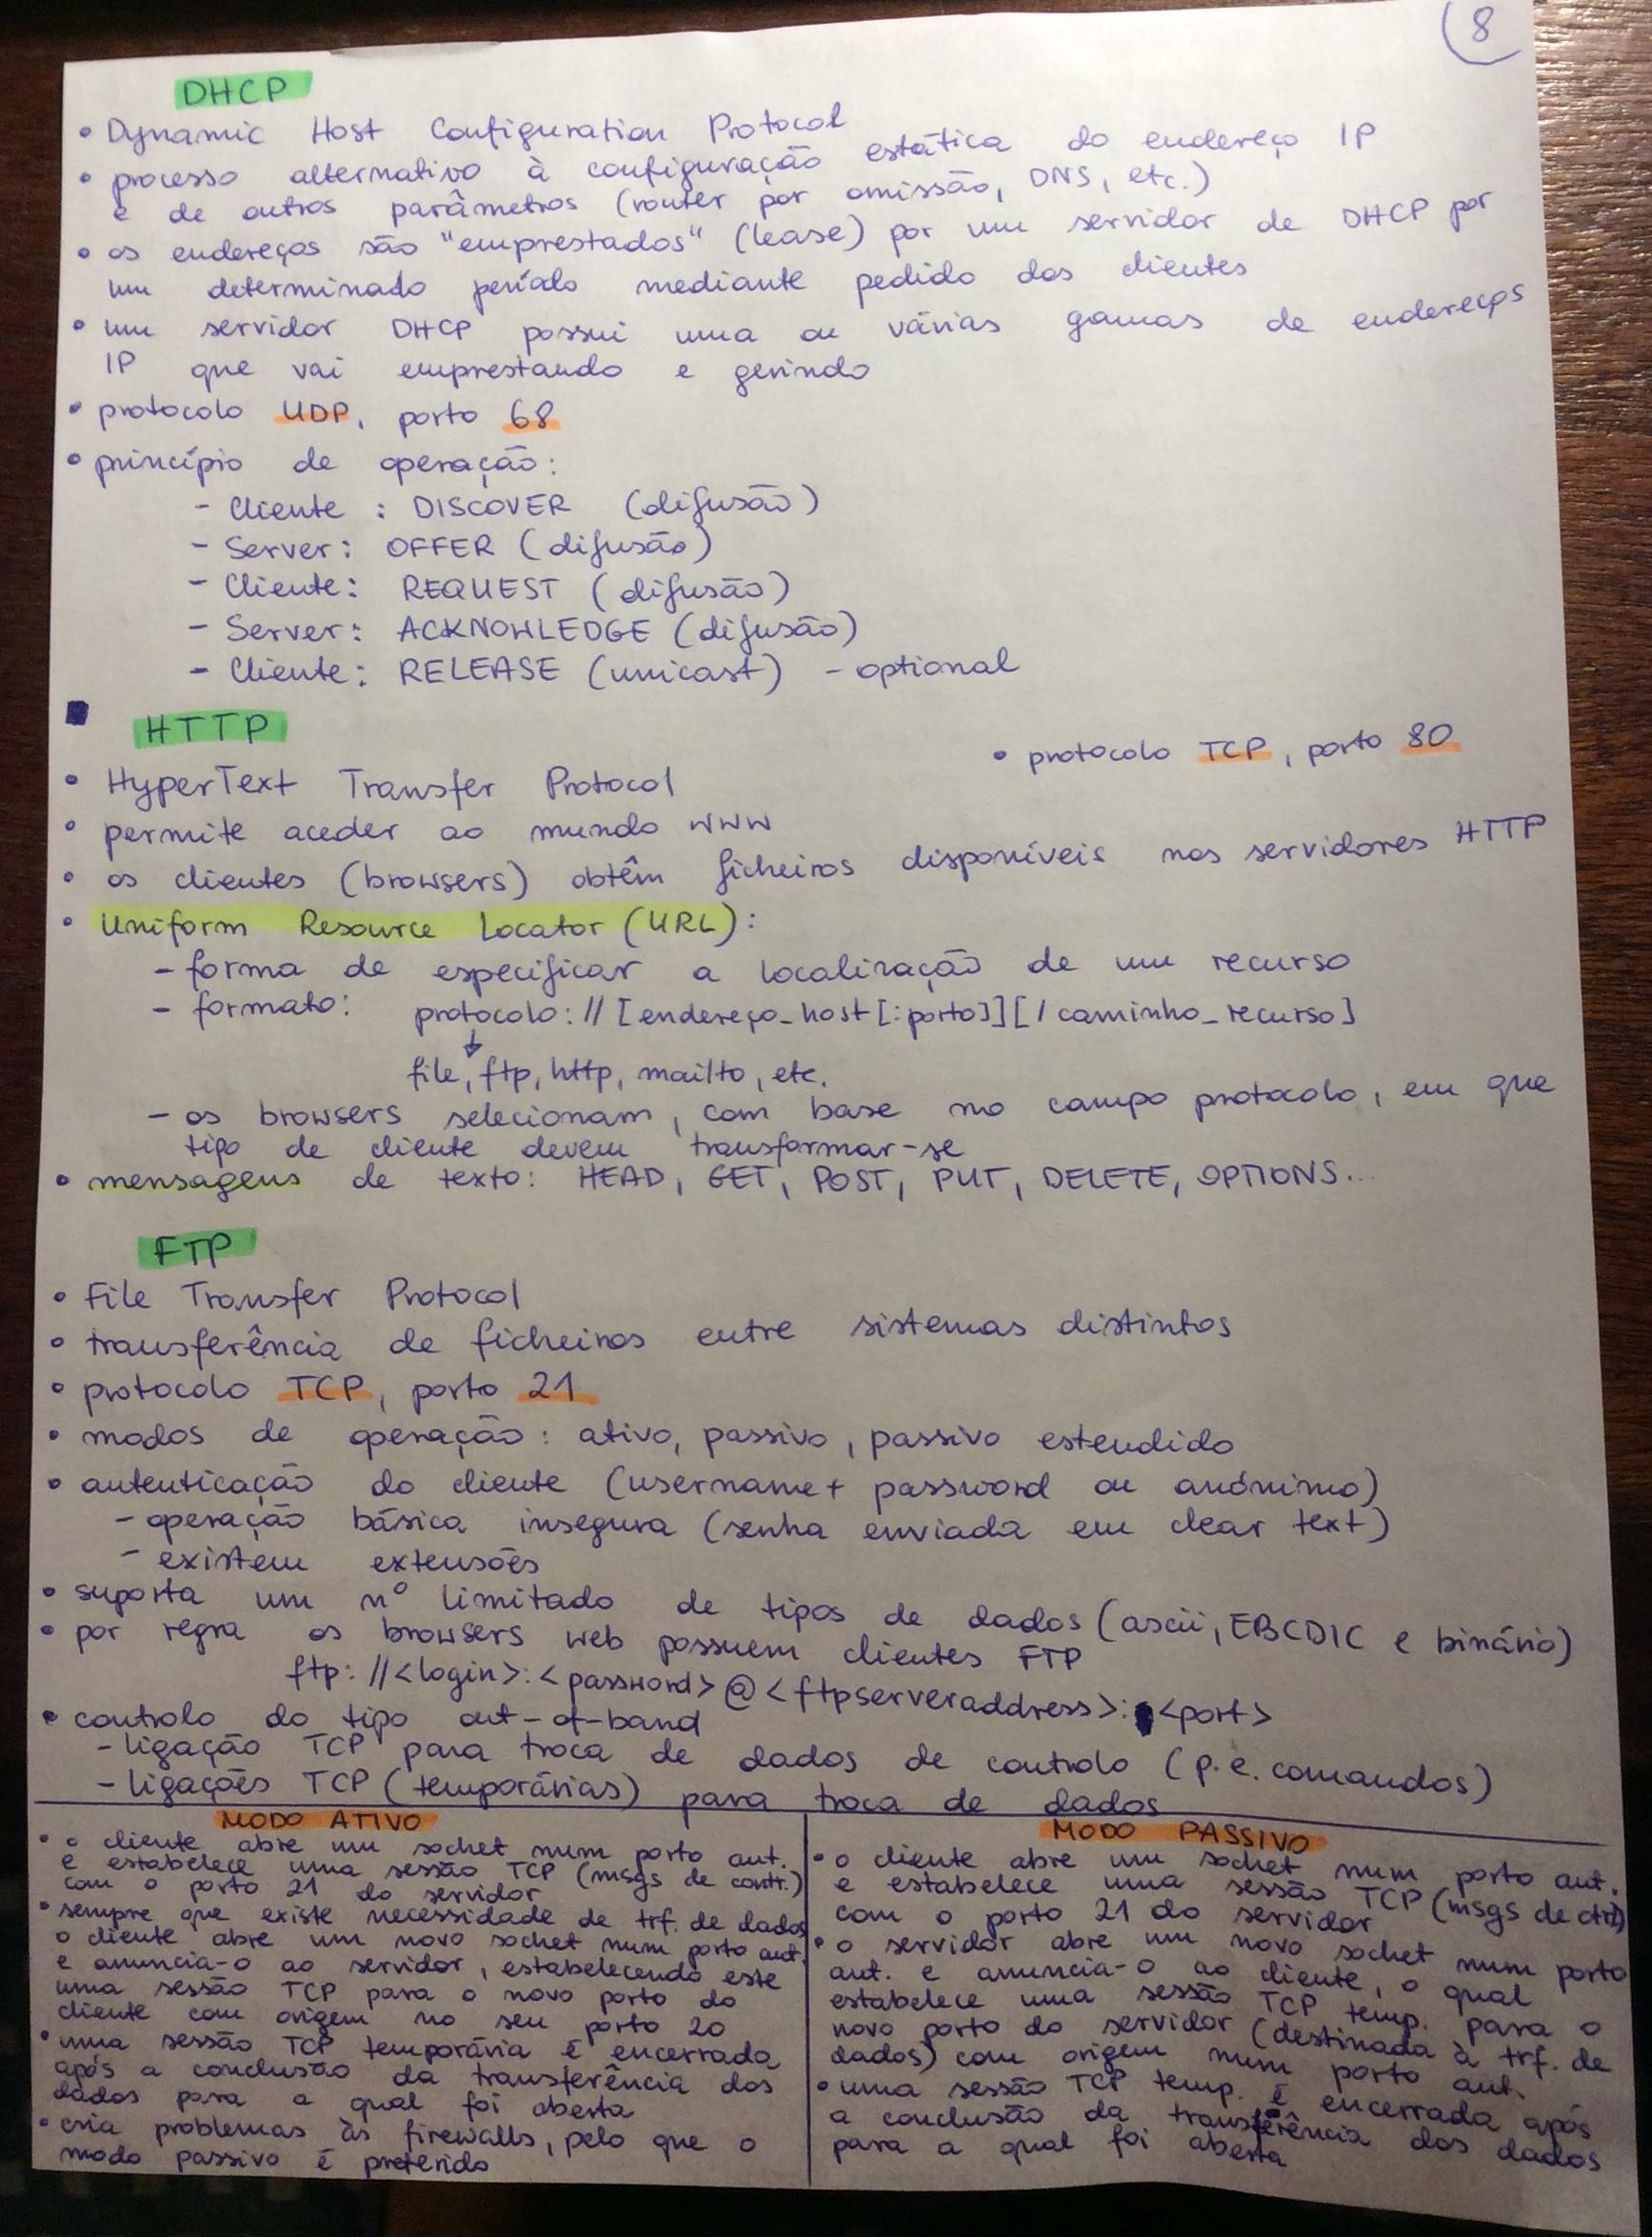 8
DHCP
• Dynamic Host Configuration Protocol
• processo alternativo à configuração estática do endereço IP
e de outros parâmetros (router por omissão, DNS, etc.)
• os endereços são "emprestados" (lease) por um servidor de DHCP por
um determinado período mediante pedido dos clientes
• um servidor DHCP possui uma ou várias gamas de endereços
IP que vai emprestando e gerindo
• protocolo UDP, porto 68
• princípio de operação:
- Cliente : DISCOVER (difusão)
- Server: OFFER (difusão)
- Cliente: REQUEST (difusão)
- Server: ACKNOWLEDGE (difusão)
- Cliente: RELEASE (unicast) - optional
HTTP
• protocolo TCP, porto 80
• HyperText Transfer Protocol
• permite aceder ao mundo WWW
• os clientes (browsers) obtêm ficheiros disponíveis nos servidores HTTP
• Uniform Resource Locator (URL):
- forma de especificar a localização de um recurso
- formato: protocolo://[endereço_host[:porto]][/caminho_recurso]
↓
file, ftp, http, mailto, etc.
- os browsers selecionam, com base no campo protocolo, em que
tipo de cliente devem transformar-se
• mensagens de texto: HEAD, GET, POST, PUT, DELETE, OPTIONS...
FTP
• File Transfer Protocol
• transferência de ficheiros entre sistemas distintos
• protocolo TCP, porto 21
• modos de operação: ativo, passivo, passivo estendido
• autenticação do cliente (username+ password ou anónimo)
- operação básica insegura (senha enviada em clear text)
- existem extensões
• suporta um nº limitado de tipos de dados (ascii, EBCDIC e binário)
• por regra os browsers web possuem clientes FTP
ftp://<login>:<password>@<ftpserveraddress>:<port>
• controlo do tipo out-of-band
- ligação TCP para troca de dados de controlo (p.e. comandos)
- ligações TCP (temporárias) para troca de dados
MODO ATIVO
• o cliente abre um socket num porto aut.
e estabelece uma sessão TCP (msgs de contr.)
com o porto 21 do servidor
• sempre que existe necessidade de trf. de dados
o cliente abre um novo socket num porto aut.
e anuncia-o ao servidor, estabelecendo este
uma sessão TCP para o novo porto do
cliente com origem no seu porto 20
• uma sessão TCP temporária é encerrada
após a conclusão da transferência dos
dados para a qual foi aberta
• cria problemas às firewalls, pelo que o
modo passivo é preferido
MODO PASSIVO
• o cliente abre um socket num porto aut.
e estabelece uma sessão TCP (msgs de ctrl)
com o porto 21 do servidor
• o servidor abre um novo socket num porto
aut. e anuncia-o ao cliente, o qual
estabelece uma sessão TCP temp. para o
novo porto do servidor (destinada à trf. de
dados) com origem num porto aut.
• uma sessão TCP temp. é encerrada após
a conclusão da transferência dos dados
para a qual foi aberta